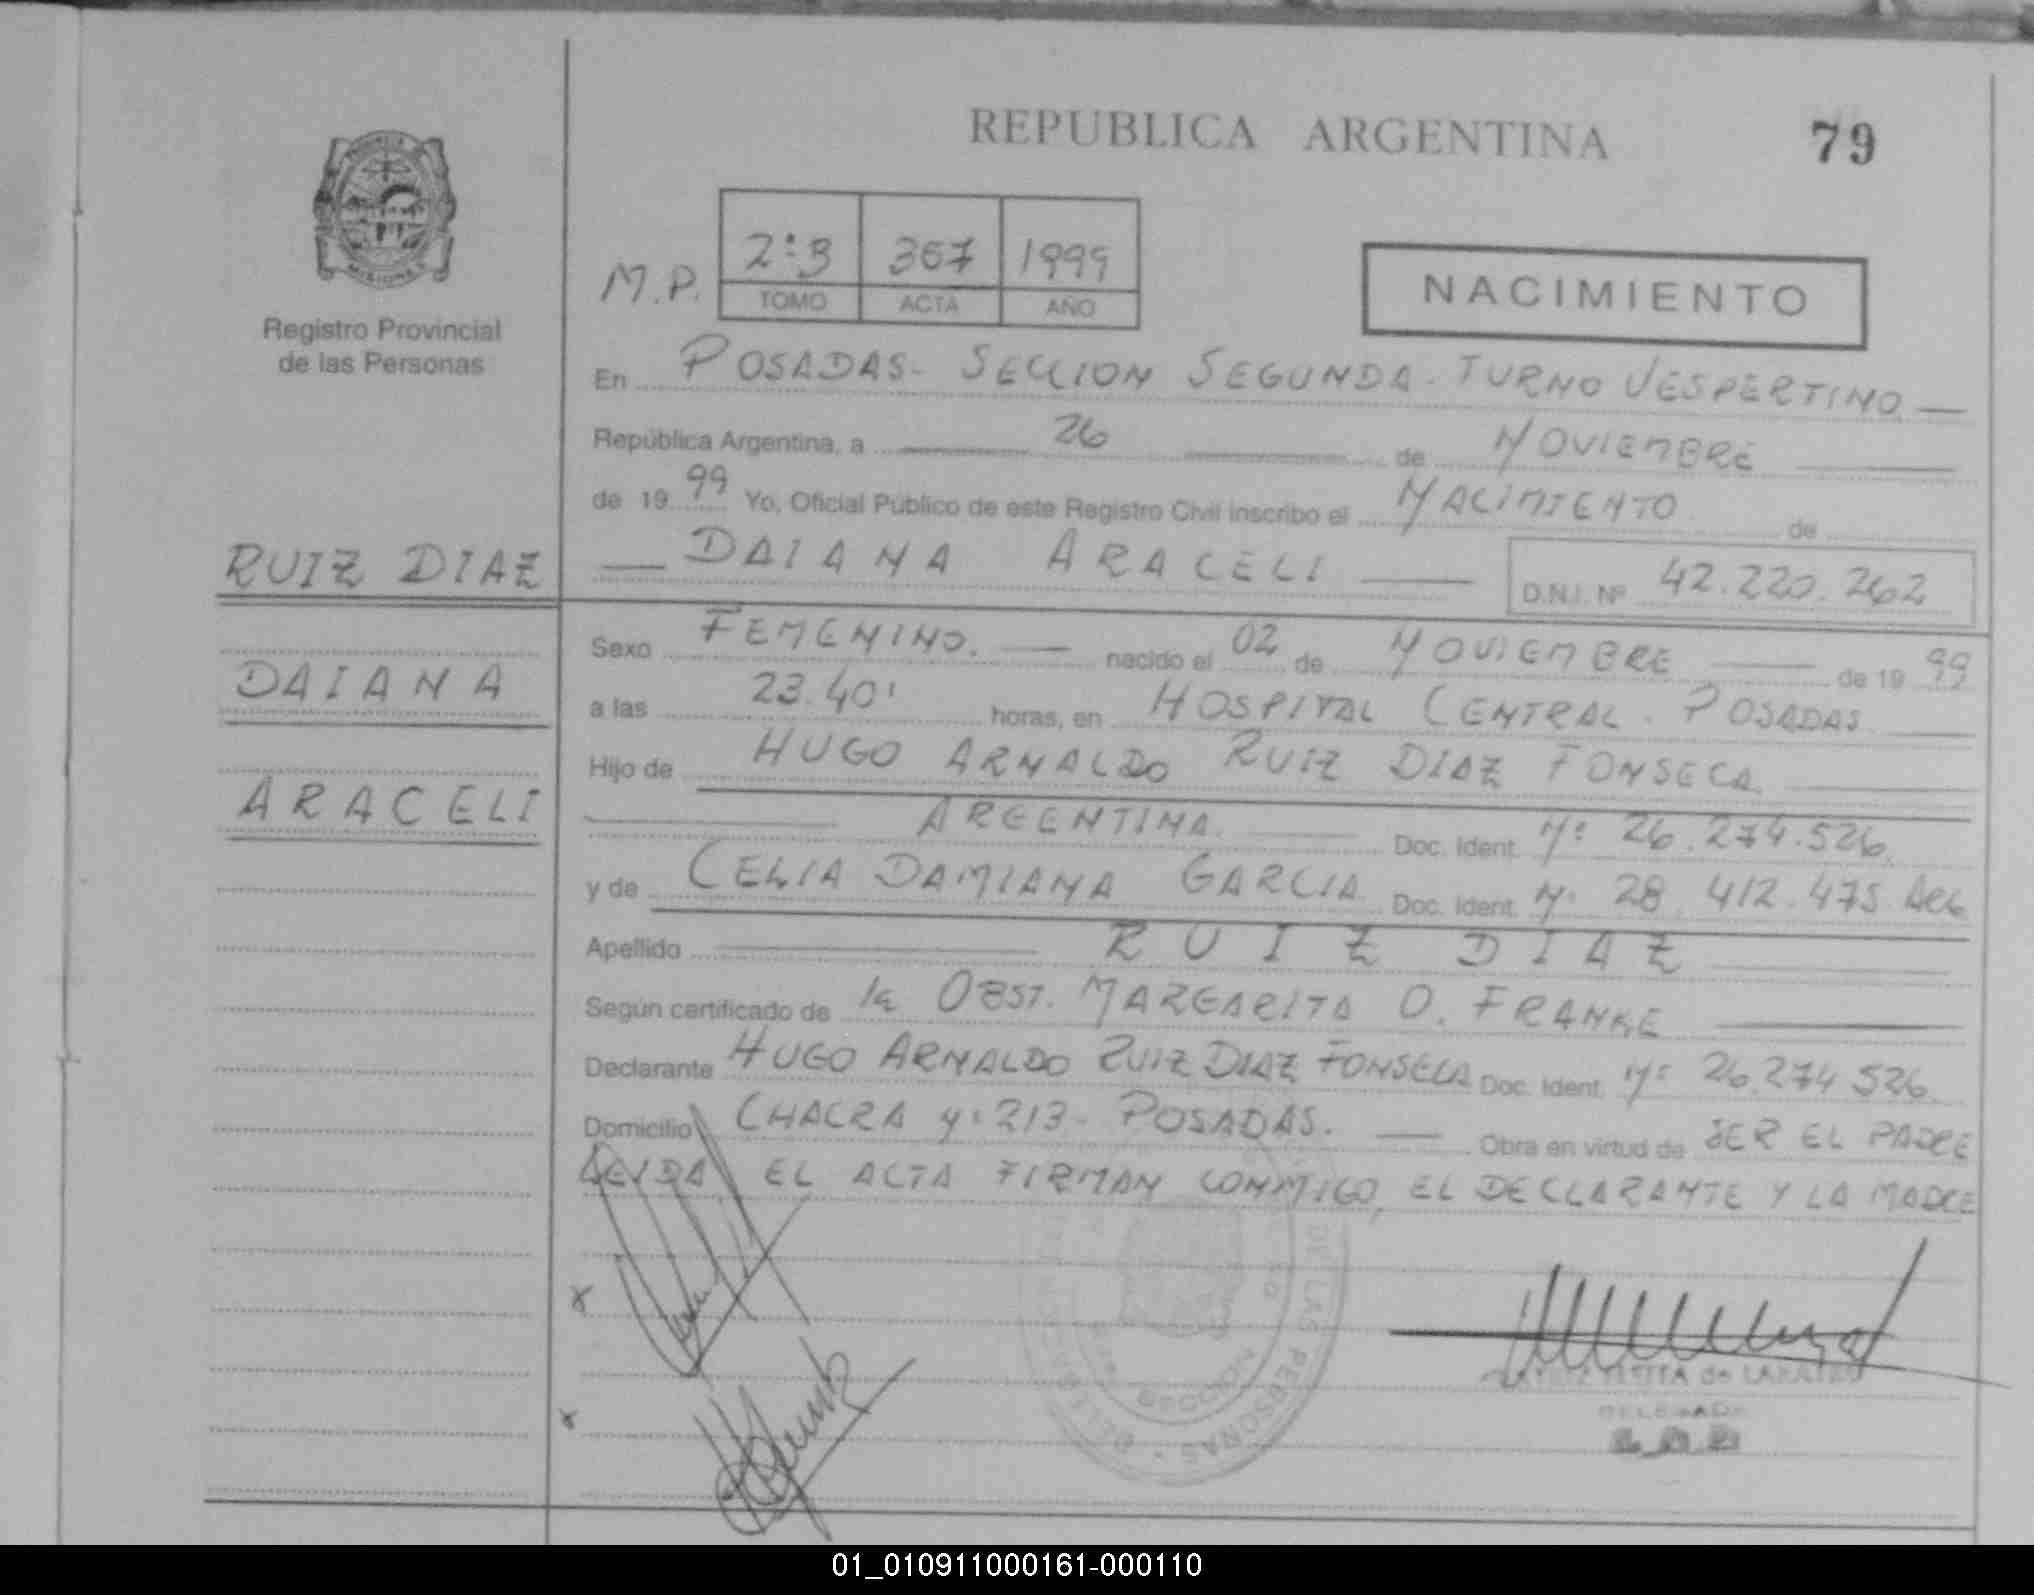 REPUBLICA ARGENTINA
79
MISIONES
Registro Provincial
de las Personas
M.P.
2:3 367 1999
TOMO ACTA AÑO
NACIMIENTO
En POSADAS - SECCION SEGUNDA - TURNO VESPERTINO
República Argentina, a 26 de NOVIEMBRE
de 1999 Yo, Oficial Público de este Registro Civil inscribo el NACIMIENTO de
RUIZ DIAZ
DAIANA ARACELI D.N.I. Nº 42.220.262
DAIANA
ARACELI
Sexo FEMENINO. nacido el 02 de NOVIEMBRE de 1999
a las 23.40' horas, en HOSPITAL CENTRAL. POSADAS
Hijo de HUGO ARNALDO RUIZ DIAZ FONSECA
ARGENTINA. Doc. Ident. Nº 26.274.526.
y de CELIA DAMIANA GARCIA Doc. Ident. Nº 28.412.475 ARG
Apellido RUIZ DIAZ
Según certificado de la OBST. MARGARITA O. FRANKE
Declarante HUGO ARNALDO RUIZ DIAZ FONSECA Doc. Ident. Nº 26.274.526
Domicilio CHACRA Nº 213 - POSADAS. Obra en virtud de SER EL PADRE
LEIDA EL ACTA FIRMAN CONMIGO, EL DECLARANTE Y LA MADRE
DE LAS PERSONAS
01_010911000161-000110